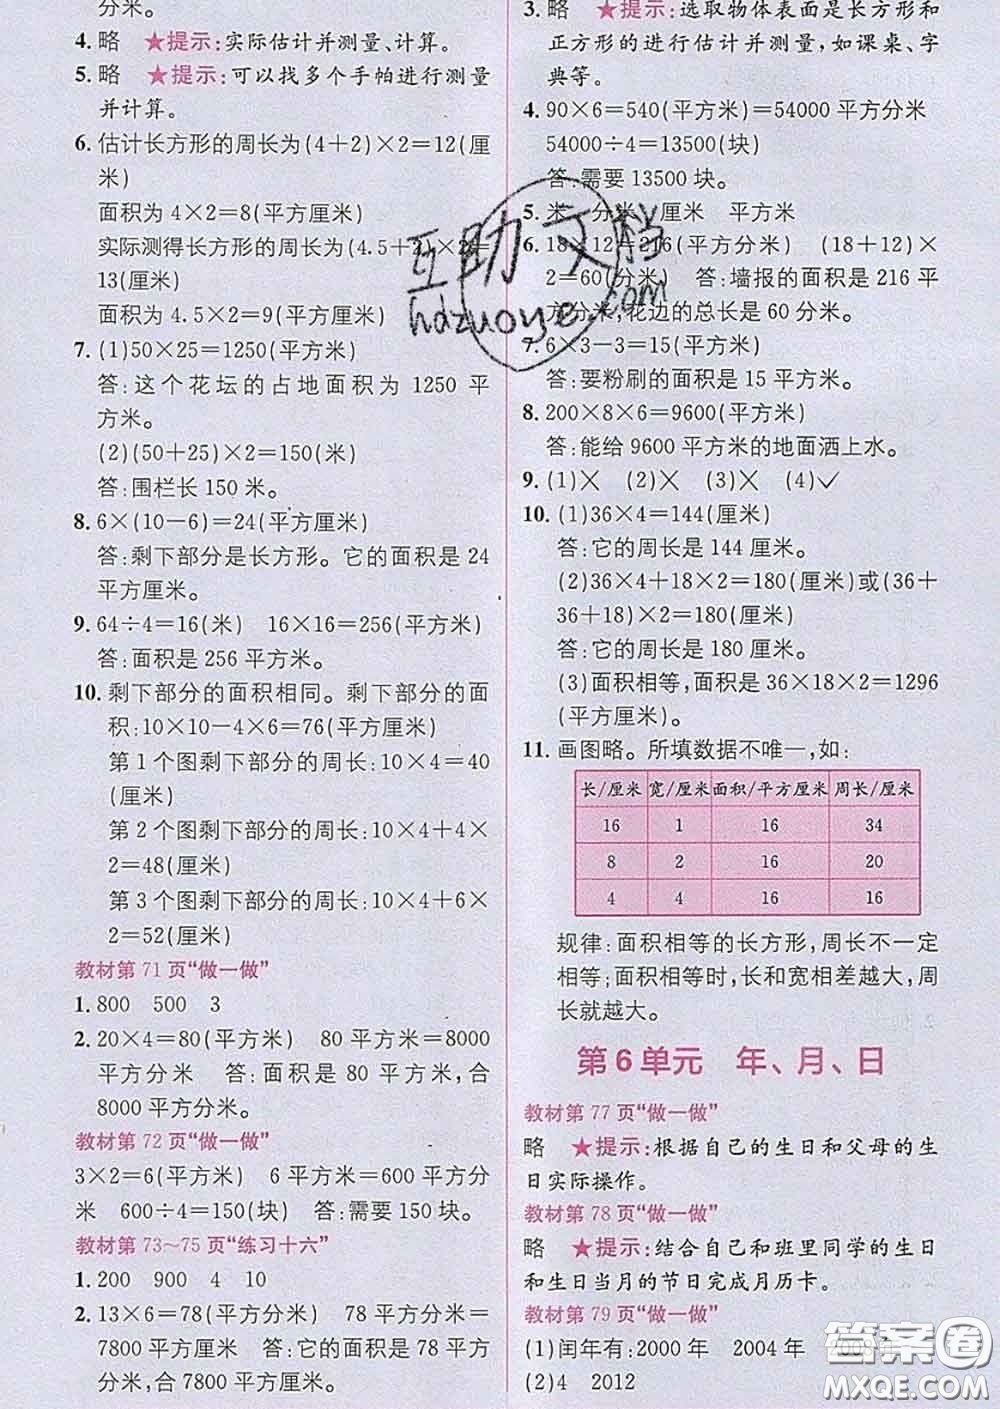 略。
4. 略　★提示:实际估计并测量、计算。
5. 略　★提示:可以找多个手帕进行测量
并计算。
6. 估计长方形的周长为(4+2)×2=12(厘
米)
面积为4×2=8(平方厘米)
实际测得长方形的周长为(4.5+2)×2=
13(厘米)
面积为4.5×2=9(平方厘米)
7. (1)50×25=1250(平方米)
答:这个花坛的占地面积为1250平
方米。
(2)(50+25)×2=150(米)
答:围栏长150米。
8. 6×(10-6)=24(平方厘米)
答:剩下部分是长方形。它的面积是24
平方厘米。
9. 64÷4=16(米)　16×16=256(平方米)
答:面积是256平方米。
10. 剩下部分的面积相同。剩下部分的面
积:10×10-4×6=76(平方厘米)
第1个图剩下部分的周长:10×4=40
(厘米)
第2个图剩下部分的周长:10×4+4×
2=48(厘米)
第3个图剩下部分的周长:10×4+6×
2=52(厘米)
教材第71页“做一做”
1. 800　500　3
2. 20×4=80(平方米)　80平方米=8000
平方分米　答:面积是80平方米,合
8000平方分米。
教材第72页“做一做”
3×2=6(平方米)　6平方米=600平方分
米　600÷4=150(块)　答:需要150块。
教材第73~75页“练习十六”
1. 200　900　4　10
2. 13×6=78(平方分米)　78平方分米=
7800平方厘米　答:它的面积是78平方
分米,合7800平方厘米。
3. 略　★提示:选取物体表面是长方形和
正方形的进行估计并测量,如课桌、字
典等。
4. 90×6=540(平方米)=54000平方分米
54000÷4=13500(块)
答:需要13500块。
5. 米　分米　厘米　平方米
6. 18×12=216(平方分米)　(18+12)×
2=60(分米)　答:墙报的面积是216平
方分米,花边的总长是60分米。
7. 6×3-3=15(平方米)
答:要粉刷的面积是15平方米。
8. 200×8×6=9600(平方米)
答:能给9600平方米的地面洒上水。
9. (1)×　(2)×　(3)×　(4)✓
10. (1)36×4=144(厘米)
答:它的周长是144厘米。
(2)36×4+18×2=180(厘米)或(36+
36+18)×2=180(厘米)
答:它的周长是180厘米。
(3)面积相等,面积是36×18×2=1296
(平方厘米)。
11. 画图略。所填数据不唯一,如:
长/厘米　宽/厘米　面积/平方厘米　周长/厘米
16　1　16　34
8　2　16　20
4　4　16　16
规律:面积相等的长方形,周长不一定
相等;面积相等时,长和宽相差越大,周
长就越大。
第6单元　年、月、日
教材第77页“做一做”
略　★提示:根据自己的生日和父母的生
日实际操作。
教材第78页“做一做”
略　★提示:结合自己和班里同学的生日
和生日当月的节日完成月历卡。
教材第79页“做一做”
(1)闰年有:2000年　2004年
(2)4　2012
互助文档
hdzuoye.com
答案圈
MXQE.COM